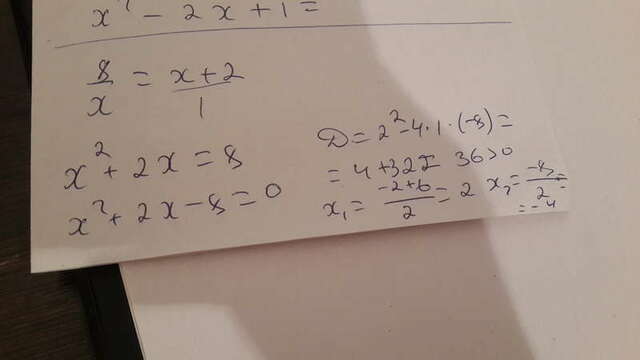 x² - 2x + 1 =
8/x = (x+2)/1
x² + 2x = 8
x² + 2x - 8 = 0
D = 2² - 4·1·(-8) =
= 4 + 32 = 36 > 0
x₁ = (-2+6)/2 = 2 x₂ =
= -4